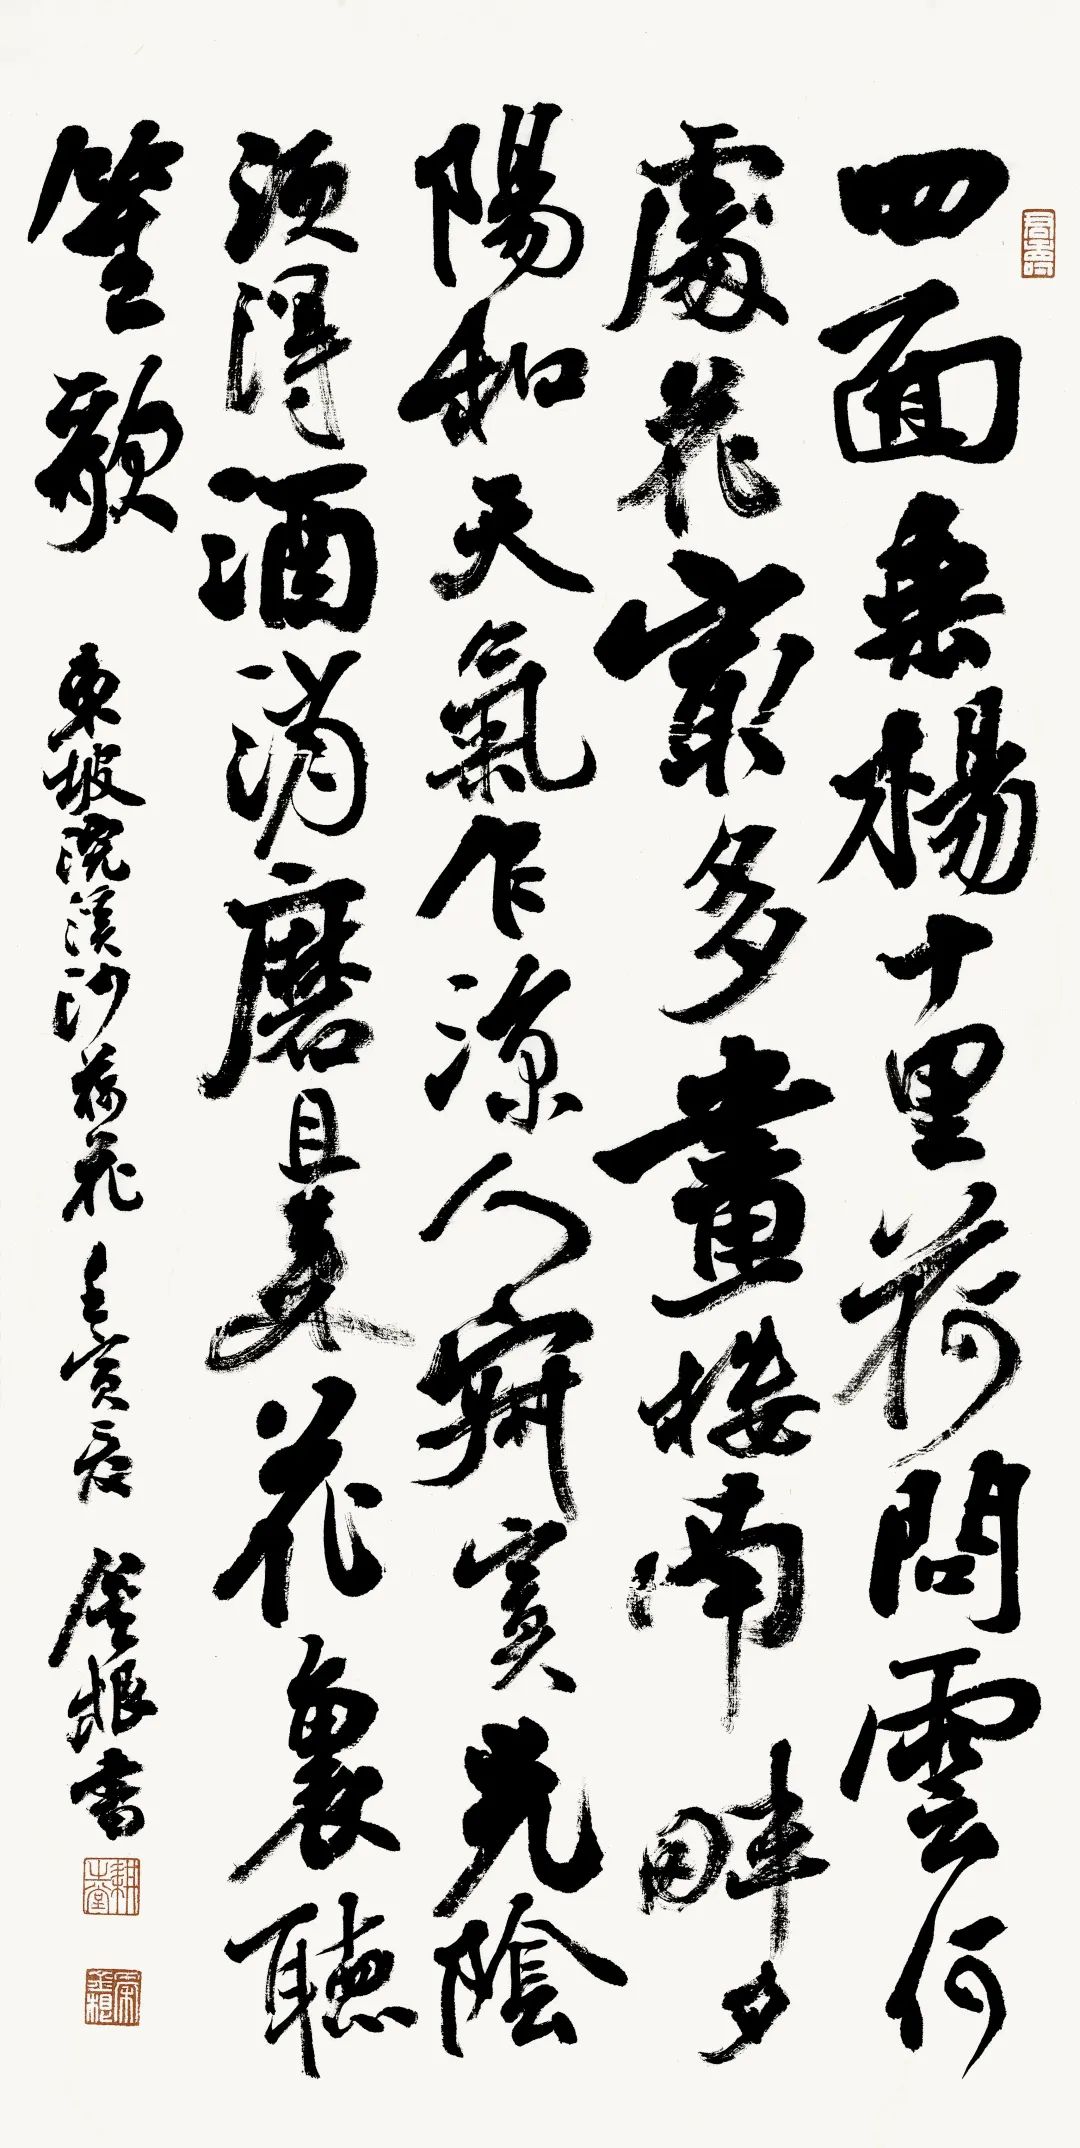 四面垂楊十里荷問雲何
處花最多畫樓南畔夕
陽和天氣乍涼人寂寞光陰
須得酒消磨且來花裏聽
笙歌
東坡浣溪沙荷花 壬寅夏 金根書